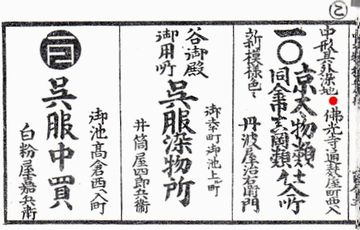 中形具外染地
佛光寺通麩屋町西入
一〇京太物類仕入所
同金巾古岡類
新模様色〻
丹波屋治右衛門
谷御殿
御用所
呉服染物所
御幸町御池上ル町
井筒屋四郎兵衛
呉服中買
御池高倉西入町
白粉屋嘉兵衛